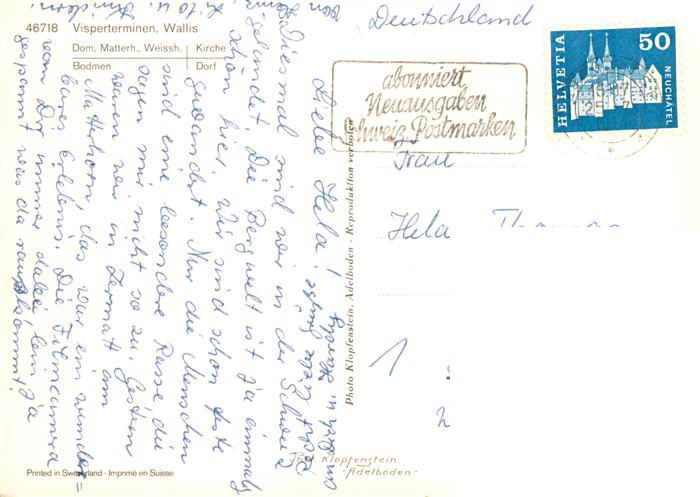 46718 Visperterminen, Wallis
Dom. Matterh., Weissh. Kirche
Bodmen Dorf
Deutschland
HELVETIA 50
NEUCHÂTEL
abonniert
Neuausgaben
Schweiz. Postmarken
Frau
Hela
1
Liebe Hela!
Diesmal sind wir in der Schweiz
gelandet. Die Bergwelt ist ja einmalig
schön hier. Wir sind schon feste
gewandert. Nur die Menschen
sind eine besondere Rasse die
sagen mir nicht so zu. Gestern
waren wir in Zermatt am
Matterhorn das war ein wunder=
bares Erlebnis. Die Filmcamera
von Dir immer dabei bin ja
gespannt was da rauskommt.
Photo Klopfenstein, Adelboden - Reproduktion verboten
Phot. Klopfenstein
-Adelboden-
Printed in Switzerland - Imprimé en Suisse